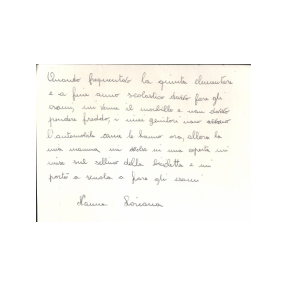 Quando frequentavo la quinta elementare
e a fine anno scolastico dovevo fare gli
esami, mi venne il morbillo e non dovevo
prendere freddo, i miei genitori non
l'automobile come le hanno ora, allora la
mia mamma mi in una coperta mi
mise sul sellino della bicicletta e mi
portò a scuola a fare gli esami